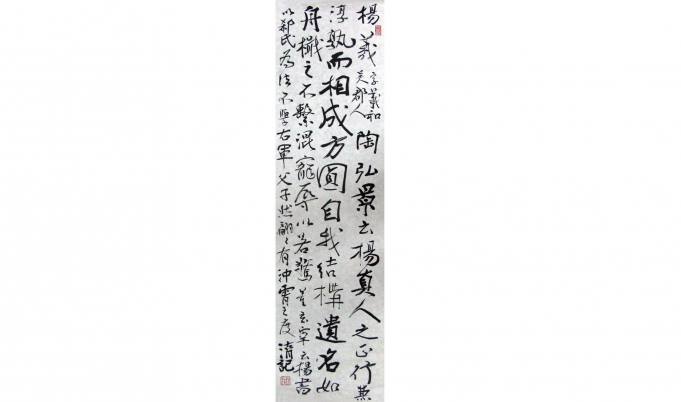 楊羲字羲和吳郡人陶弘景云楊真人之正行兼
淳熟而相成方圓自我結構遺名如
舟檝之不繫混寵辱以若驚董玄宰云楊書
以郗氏為法不學右軍父子然翩々有沖霄之度
清記